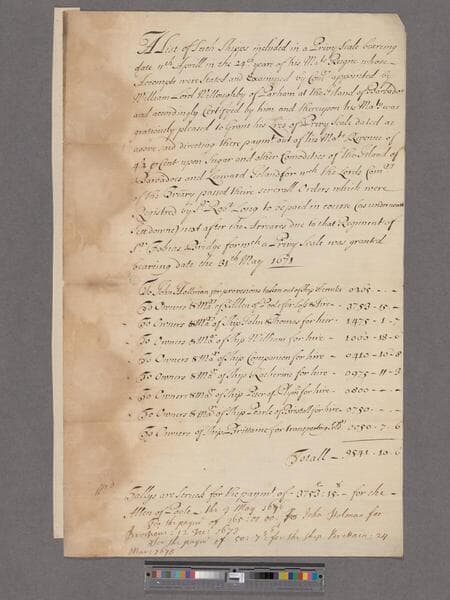 A List of Such Shipps included in a Privy Seale bearing
date 11th Aprill in the 24th yeare of his Mats Reigne whose
Accompts were Stated and Examined by Comrs appointed by
William Lord Willoughby of Parham at the Island of Barbados
and accordingly Certifyed by him and thereupon his Maty was
graciously pleased to Grant his Lres of Privy Seale dated as
above, and directing there paymt out of his Mats Revenue of
4½ p Cent upon Sugar and other Comodities of the Island of
Barbadoes and Leeward Islands for wch the Lords Comrs
of the Treary passed theire severall Orders which were
Registred by Sr Robt Long to be paid in course (as underneath
Sett downe) next after the Arreares due to that Regiment of
Sr Tobias Bridge for wch a Privy Seale was granted
bearing date the 31th May 1671
To John Hollman for provisions taken out of Ship 0265 - -
To Owners & Mr of Allen of Poole for Loss & hire - 3753 - 15 -
To Owners & Mr of Ship John & Thomas for heir - 1475 - 1 - 7
To Owners & Mr of Ship William for hire - 1000 - 18 - 6
To Owners & Mr of Ship Companion for hire - 0410 - 10 - 8
To Owners & Mr of Ship Katherine for hire - 0975 - 11 - 3
To Owners & Mr of Ship Peter of Plym for hire - 0800 - - -
To Owners & Mr of Ship Pearle of Bristoll for hire - 0750 - - -
To Owners of Ship Brittaine for transporte 0050 - 7 - 6
Totall - 9541 - 10 - 6
Tallys are Struck for the paymt of - 3753 - 15 - for the
Allen of Poole - the 9 May 1672
For the paymt of 265: 00 00 John Holman for
Provisions: 12 1673
for the paymt of 50: 7 for the Ship Brittain: 24
Mar: 1675